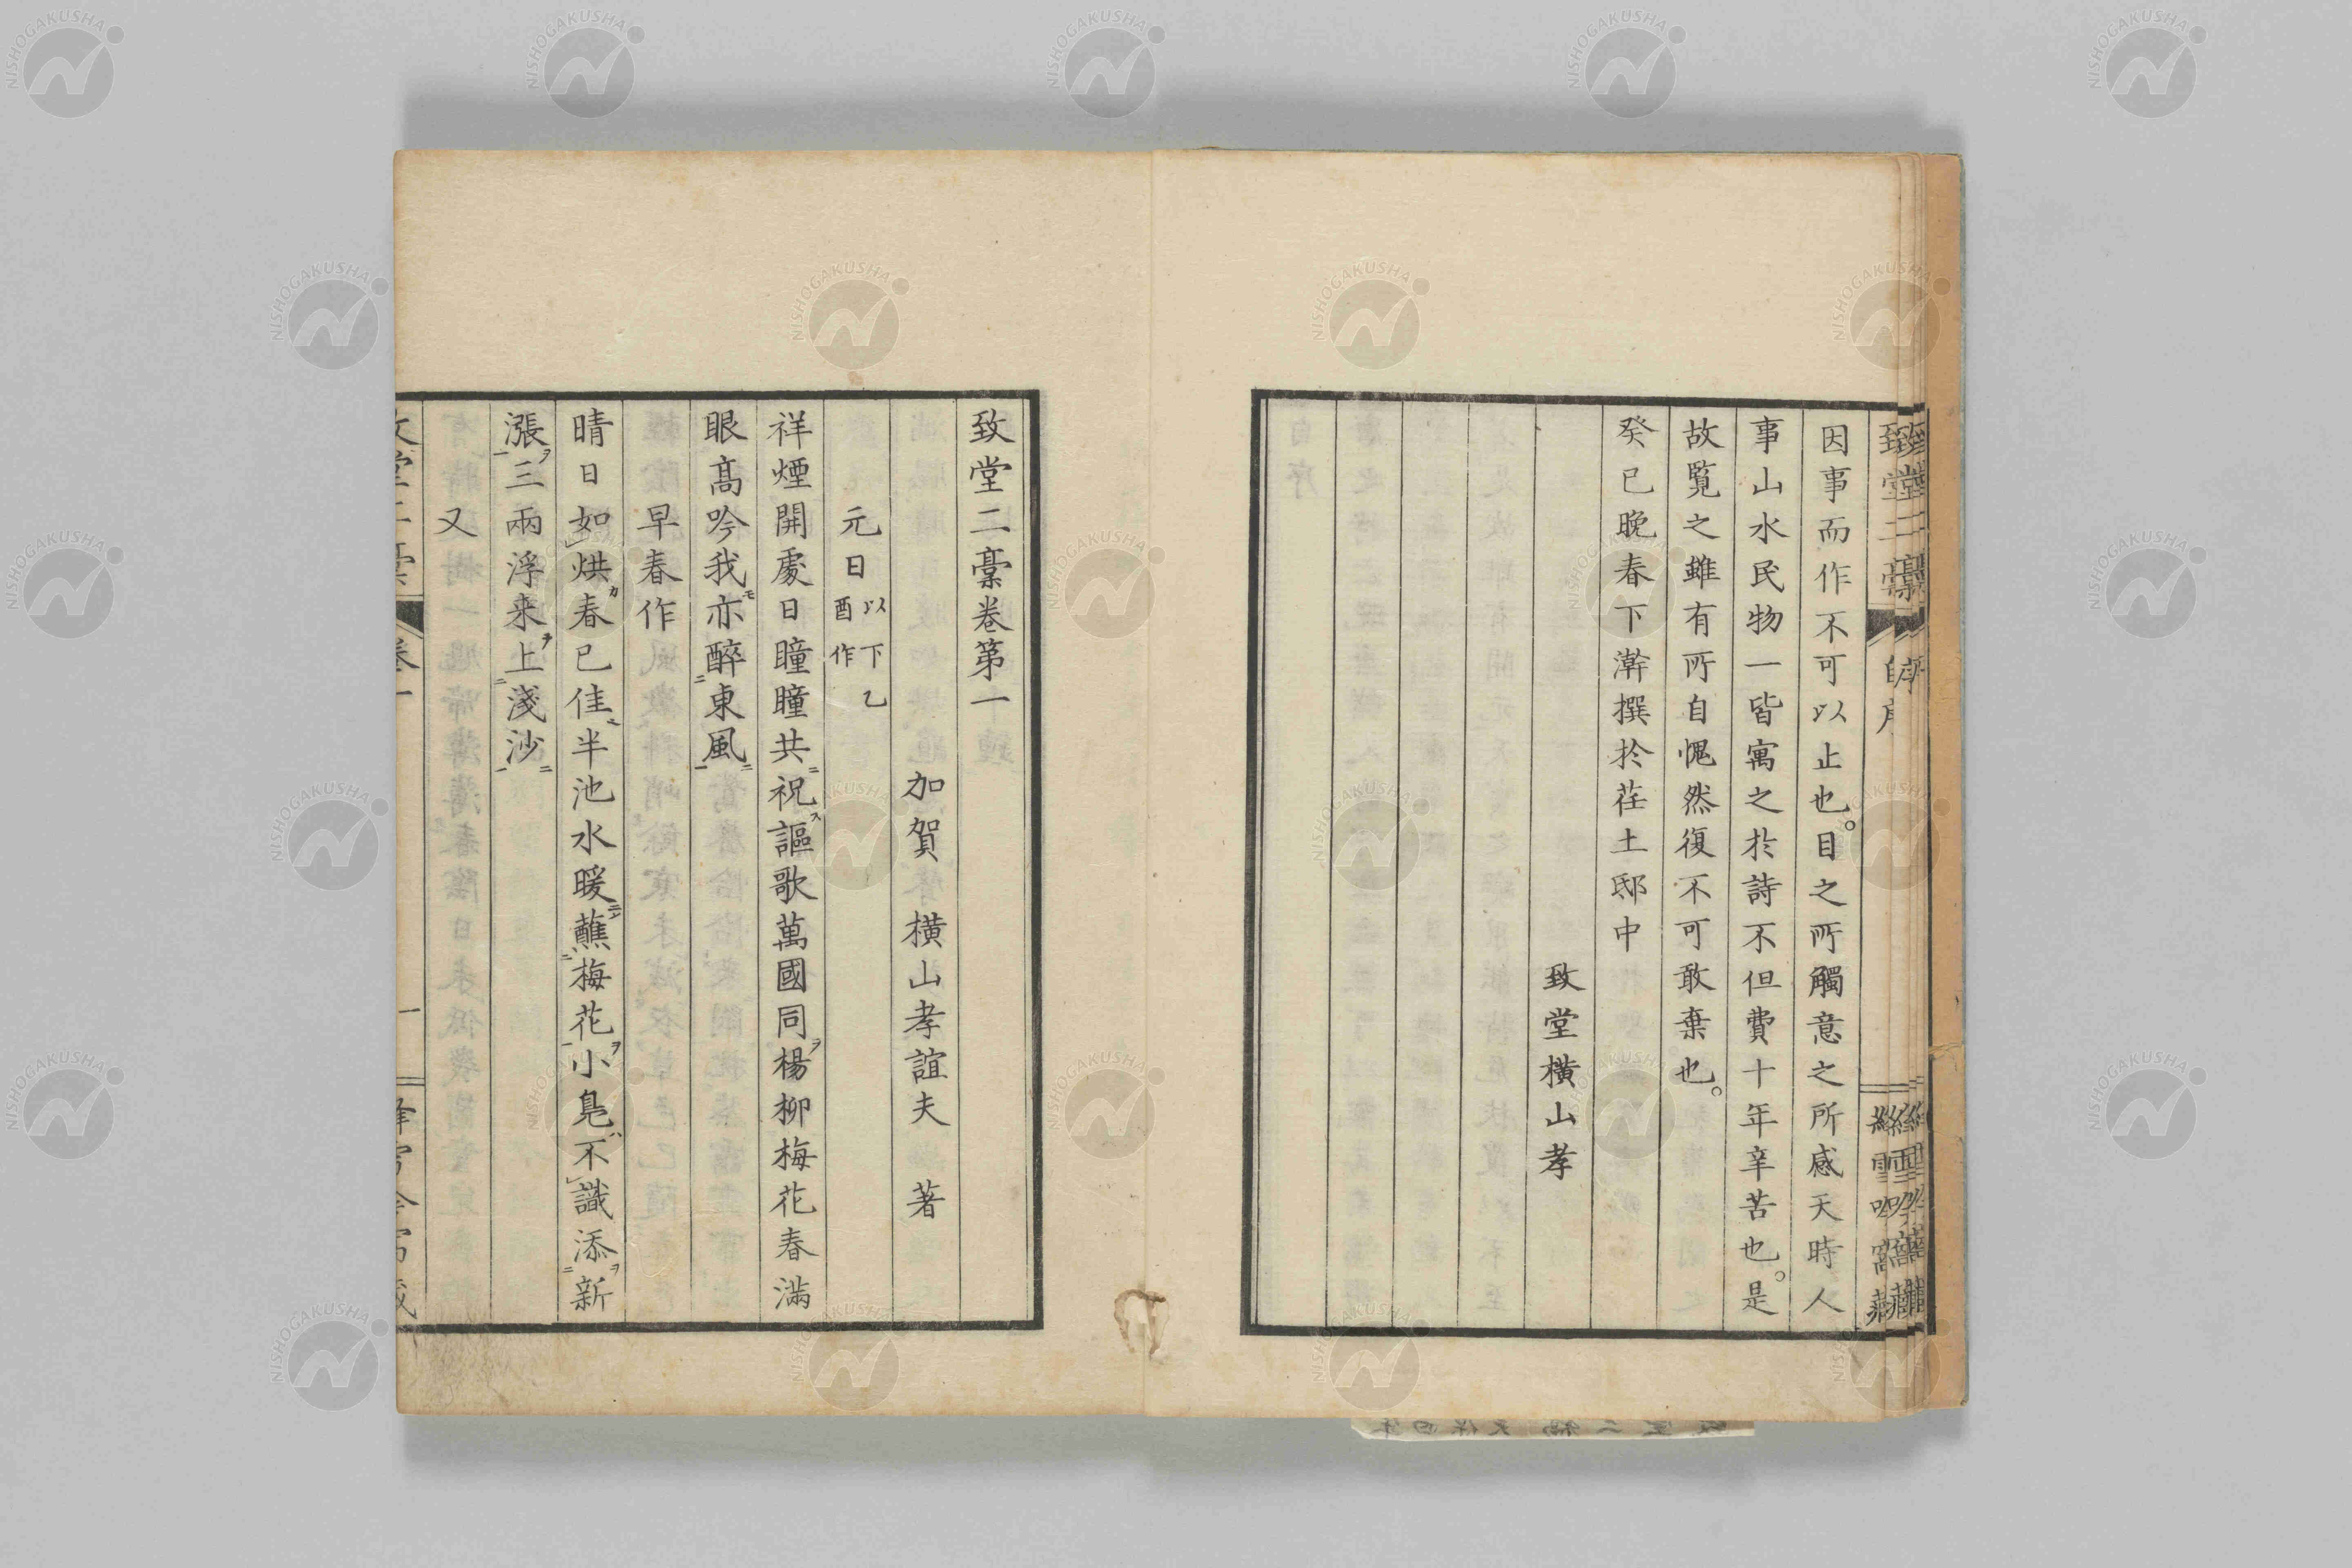 因事而作不可以止也。目之所觸意之所感天時人
事山水民物一皆寓之於詩不但費十年辛苦也。是
故覧之雖有所自愧然復不可敢棄也。
癸巳晩春下澣撰於荏土邸中
致堂橫山孝
致堂二稾卷第一
加賀 橫山孝誼夫 著
元日 以下乙酉作
祥煙開處日曈曈共祝謳歌萬國同楊柳梅花春滿
眼髙吟我亦醉東風
早春作
晴日如烘春已佳半池水暖蘸梅花小鳧不識添新
漲三兩浮来上淺沙
又
NISHOGAKUSHA